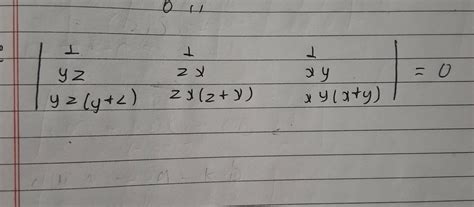 | 1 1 1 |
| yz zx xy | = 0
| yz(y+z) zx(z+x) xy(x+y) |